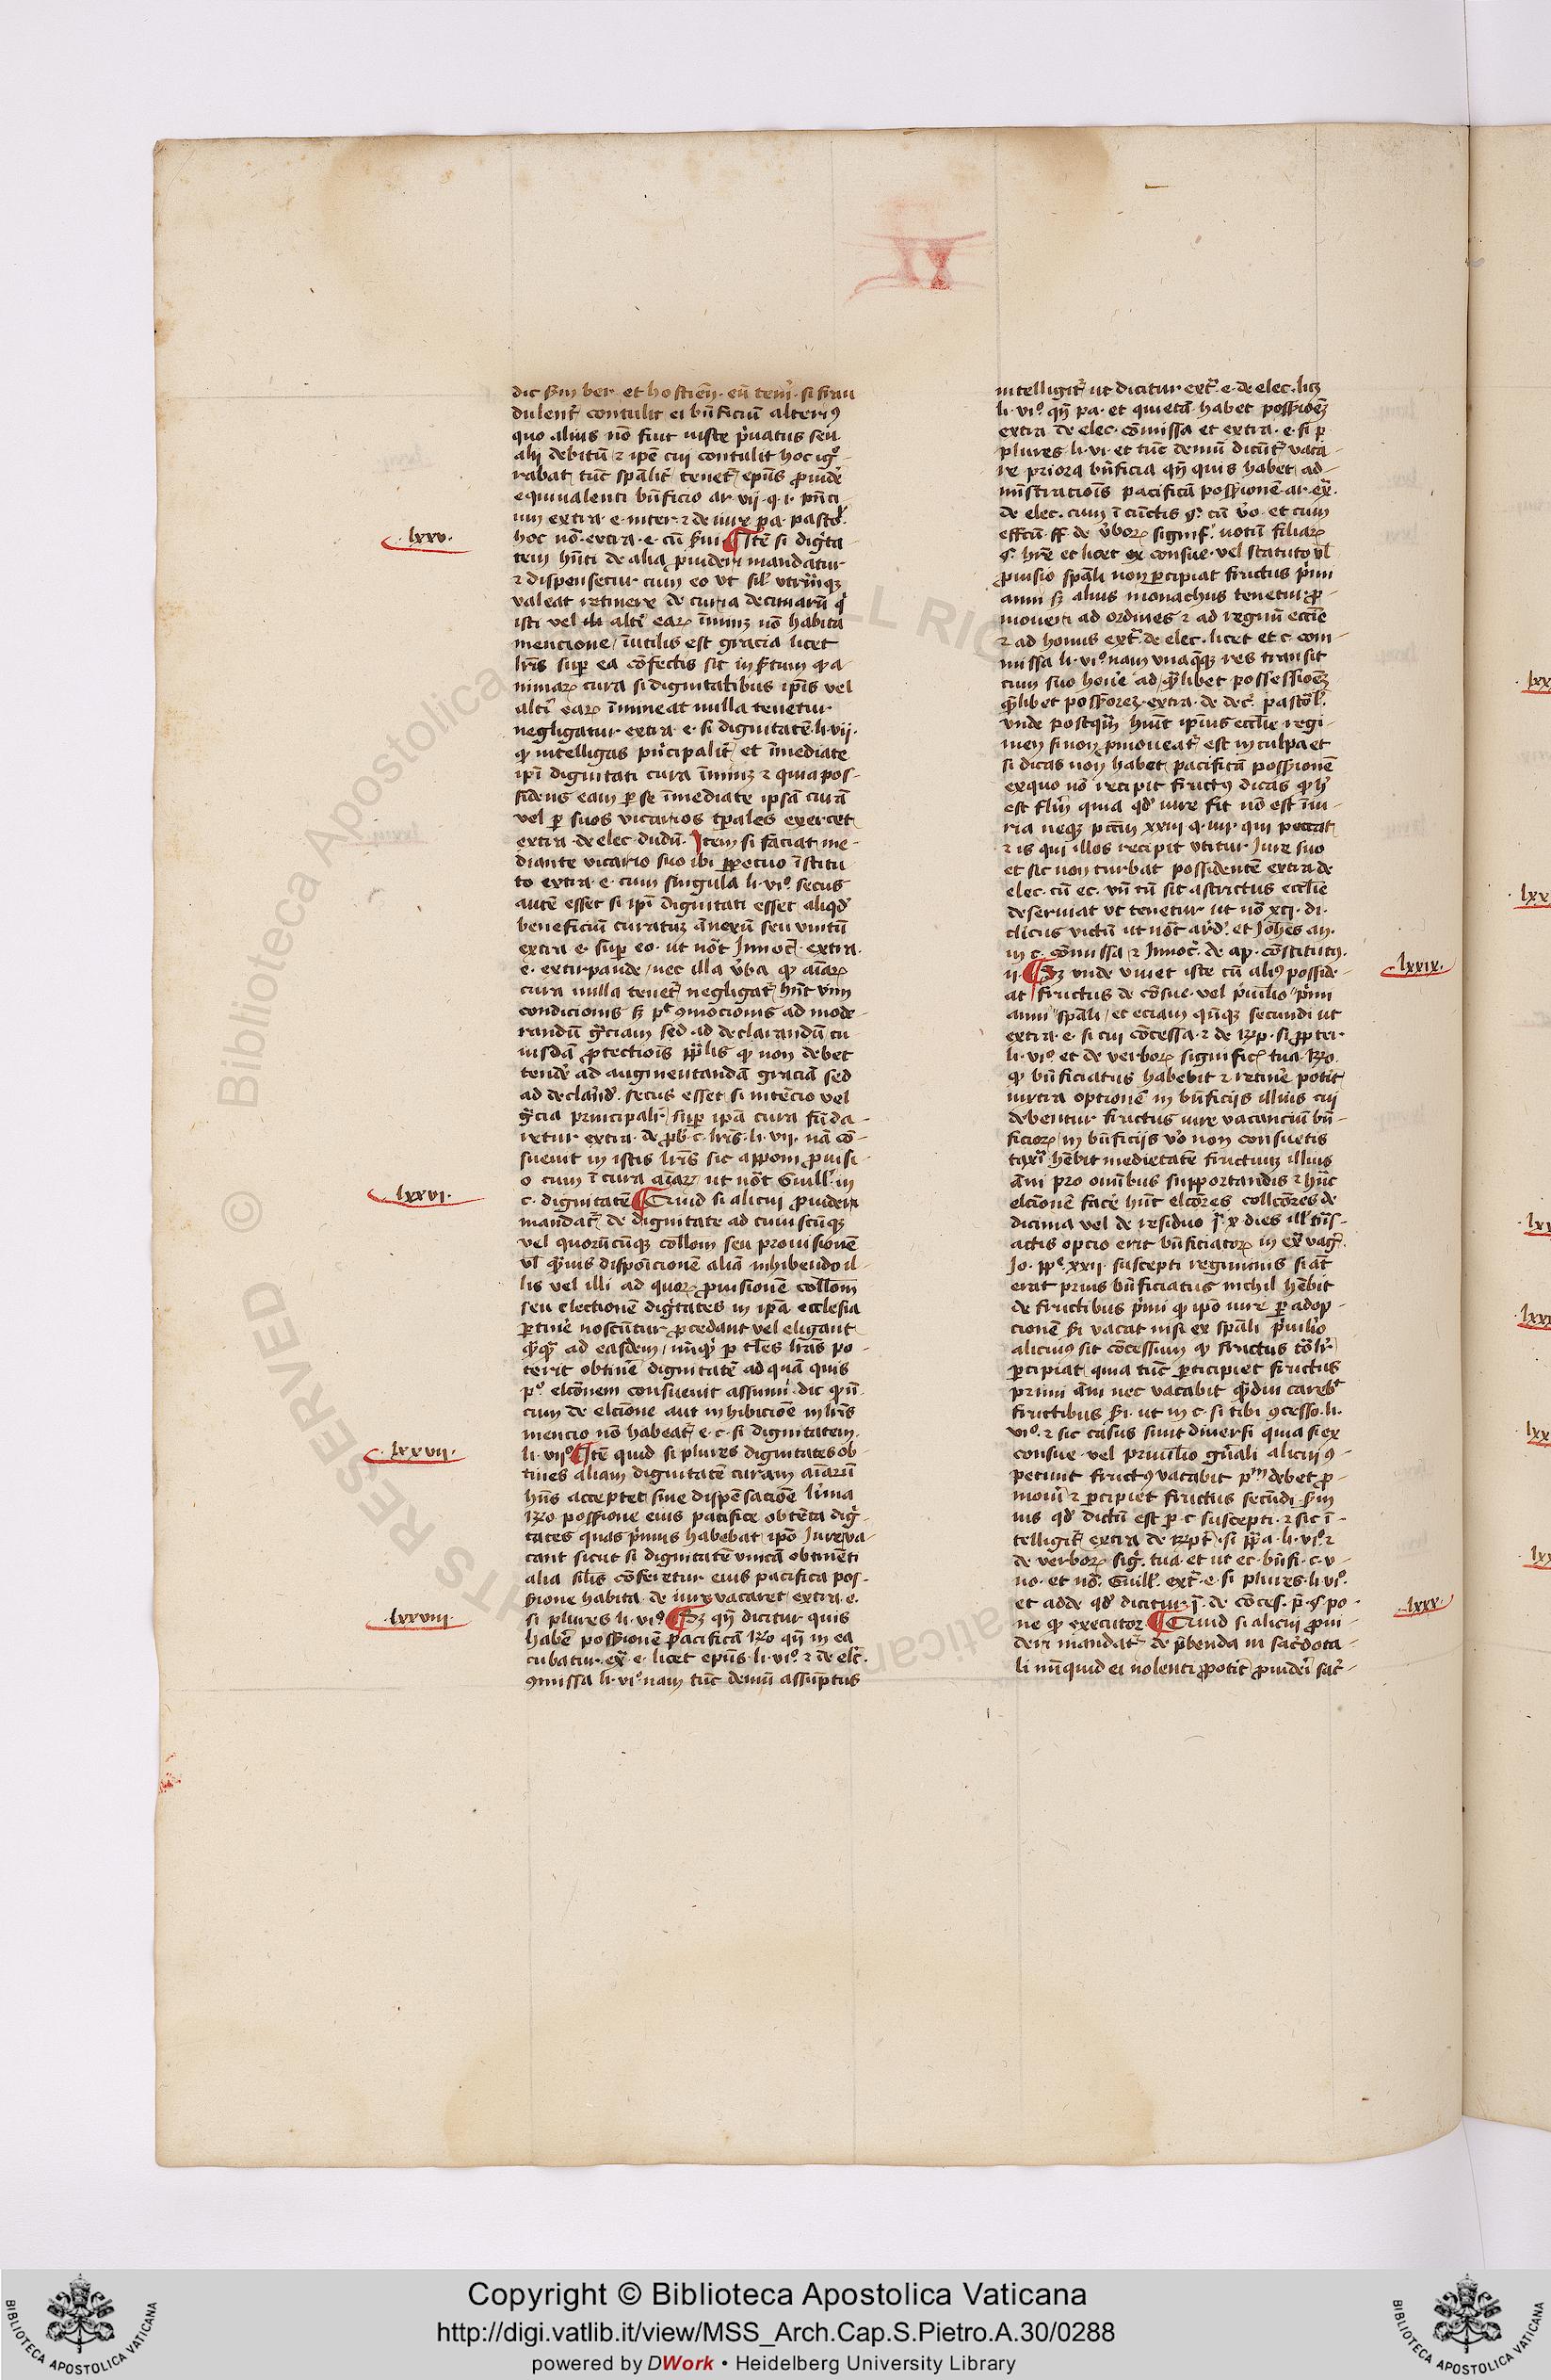 II
dic secundum ber. et hostien. eum teneri. si frau
dulent̄ contulit ei bn̄ficiū alteriꝰ
quo alius nō fuit iuste p̄uatus seu
alij debitū ⁊ ip̄e cui contulit hoc ig̊-
rabat tūc sp̄alit̄ tenet᷑ ep̄us ꝓuidē
equiualenti bn̄ficio ar. vij. q. i. pn̄ci
um extra. e. inter ⁊ de iure pa. pasto.
hoc nō. extra. e. cū
.lxxv.
¶ Itē si digīta
tem hn̄ti de alia ꝓuideri mandatur
⁊ dispensetur cum eo ut sil̄ utrūqꝫ
valeat retinere de cura decimarū
isti vel alt̄i earꝝ īminꝫ nō habita
mencione, īutilis est gracia licet
lr̄is suꝑ ea cōfectis sit insertum ꝙ a
nimarꝝ cura si dignitatibus ip̄is vel
alt̄i earꝝ īmineat nulla tenetur
negligatur extra. e. si dignitatē. li. vij.
ꝙ intelligas pn̄cipalit̄ et īmediate
ip̄i dignitati cura īminꝫ ⁊ quia pos-
sidens eam ꝑ se īmediate ipsā curā
vel ꝑ suos vicarios tꝑales exercet
extra. de elec. dudū. Item si faciat me-
diante vicario suo ibi ꝑpetuo īstitu
to extra. e. cum singula li. vi°. secus
autē esset si ip̄i dignitati esset aliqd̄
beneficiū curatuꝫ ānexū seu vnitū
extra e. suꝑ eo. ut nōt Innoc̄. extra.
e. extirpande, nec illa v̄ba ꝙ aīarꝝ
cura nulla tenet᷑ negligat᷑ hn̄t vim
condicionis ꝯmocionis ad mode-
randū gr̄ciam sed ad declarandū cu-
iusdā ꝓtectiōis ꝙ non debet
tendē ad augmentandā graciā sed
ad declarād̄. secus esset si intēcio vel
gr̄cia principalit̄ suꝑ ipā cura fūda-
retur extra. de p̄b. c. lr̄is. li. vij. nā cō-
sueuit in istis lr̄is sic apponi ꝓuisi-
o cum ī cura aīarꝝ, ut nōt Guill̄. in
.lxxvi.
c. dignitatē ¶ Quid si alicui ꝓuideri
mandat᷑ de dignitate ad cuiuscūqꝫ
vel quorūcūqꝫ coll̄om seu prouisionē
vl̄ quāuis disposicionē aliā inhibendo il-
lis vel illi ad quorꝝ ꝓuisionē coll̄om
seu electionē digītates in ipā ecclesia
ꝑtinē noscūtur ꝓcedant vel eligant
ad easdem, nūquid ꝑ tl̄es lr̄as po-
terit obtinē dignitatē ad quā quis
p° elcōnem consueuit assumi. dic
cum de elcione aut inhibicōe in lr̄is
mencio nō habeat᷑. e. c. si dignitatem.
.lxxvii.
li. vij° ¶ Itē quid si plures dignitates ob-
tines aliam dignitatē curam aīarū
hn̄s acceptet sine dispēsacōe
R̄o possione eius pacifice obtēta digi-
tates quas p̄mus habebat ip̄o Iure va-
cant sicut si dignitatē vnicā obtinēti
alia sil̄is cōferetur eius pacifica pos-
sione habita de iure vacaret extra. e.
.lxxviii.
si plures li. vi° ¶ Sꝫ qn̄ dicitur quis
habē possionē pacificā R̄o qn̄ in ea
cubatur. ex̄. e. licet ep̄us. li. vi°. ⁊ de elc̄.
ꝯmissa li. vi° nam tūc demū assūptus
intelligit᷑ ut dicitur ext̄. e. de elec. lꝫ
li. vi°. qn̄ pa. et quietā habet possioēꝫ
extra de elec. cōmissa et extra. e. si ꝑ
plures li. vi. et tūc demū dicūt᷑ vaca-
re priora bn̄ficia qn̄ quis habet ad-
mīstraciōis pacificā possionē. ar. ex̄.
de elec. cum ī cūctis §. cū vo. et cum
effcū ff. de v̄borꝝ signif. uotū filiarꝝ
§. hr̄e et licet ex consue. vel statuto vl̄
ꝓuisio sp̄ali non ꝑcipiat fructus p̄mi
anni sꝫ alius monachus tenetur ꝓ-
moueri ad ordines ⁊ ad regimē ecc̄ie
⁊ ad honus ext̄. de elec. licet et c. com-
missa li. vi°. nam vnaqueqꝫ res transit
cum suo honē ad quēlibet possessiōeꝫ
quēlibet possoreꝫ. extra. de dec̄. pastoral̄.
vnde postqᷓ hūit ip̄ius ecc̄lie regi-
men si non ꝓmoueat᷑ est in culpa et
si dicas non habet pacificā possionē
exquo nō recipit fructꝰ dicas ꝙ h̄
est quia qd̄ iure fit nō est īiu-
ria neqꝫ pcc̄m xxiij q. iiij. qui peccat
⁊ is qui illos recipit vtitur Iure suo
et sic non turbat possidentē extra de
elec. cū ec. vn̄ cū sit astrictus eccl̄ie
deseruiat ut tenetur ut nō xcj. di.
clicus victū ut nōt ard°. et Joh̄es an.
in c. cōmissa ⁊ Innoc̄. de ap. cōstitutꝰ.
.lxxix.
ij. ¶ Sꝫ vnde viuet iste cū aliꝰ possid-
at fructus de cōsue. vel p̄iuil̄io p̄mi
anni sp̄ali, et eciam qn̄qꝫ secundi ut
extra. e. si cui cōcessa. ⁊ de R̄p. si ꝓpter
li. vi° et de verborꝝ signific̄ tua. R̄o.
ꝙ bn̄ficiatus habebit ⁊ retinē potīt
iuxta optionē in bn̄ficijs illius cui
debentur fructus iure vacanciū bn̄-
ficiorꝝ in bn̄ficijs vo non consuetis
taxī hēbit medietatē fructuuꝫ illius
āni pro onūbus supportandis ⁊ hn̄c
elcionē facē hūt elcōres collcōres de
dicima vel de residuo x dies tn̄s-
actis opcio erit bn̄ficiatorꝝ in ex̄ vag̅.
Jo. pp̄. xxij. suscepti regiminis si āt
erat prius bn̄ficiatus nichil hēbit
de fructibus p̄mi ꝙ ipō iure ꝑ adop-
cionē vacat nisi ex sp̄ali p̄uil̄io
alicuiꝰ sit cōcessum ꝙ fructus
ꝑcipiat quia tūc ꝑticipiet fructus
primi āni nec vacabit careb̄t
fructibus. ut in c. si tibi ꝯcesso. li.
vi°. ⁊ sic casus sunt diuersi quia si ex
consue. vel priuil̄io gn̄ali alicuiꝰ
petunt fructꝰ vacabit pᵐ debet ꝓ-
mouī ⁊ ꝑcipiet fructus secūdi
ius qd̄ dictū est ꝑ c suscepti. ⁊ sic ī-
telligit᷑ extra de R̄pt̄. si a. li. vi°. ⁊
de verborꝝ sig̅. tua. et ut ec. bn̄fi. c. v-
no. et nō. Guill̄. ext̄. e. si plures. li. vi°.
et adde qd̄ dicitur. de cōces. p̄. § po-
.lxxx.
ne ꝙ executor ¶ Quid si alicui ꝓui-
deri mandat᷑ de p̄benda in sac̄dota-
li nūquid ei nolenti potīt ꝓuideri sac̄-
Copyright © Biblioteca Apostolica Vaticana
http://digi.vatlib.it/view/MSS_Arch.Cap.S.Pietro.A.30/0288
powered by DWork • Heidelberg University Library
BIBLIOTECA APOSTOLICA VATICANA
BIBLIOTECA APOSTOLICA VATICANA
© Biblioteca Apostolica Vaticana
ALL RIGHTS RESERVED